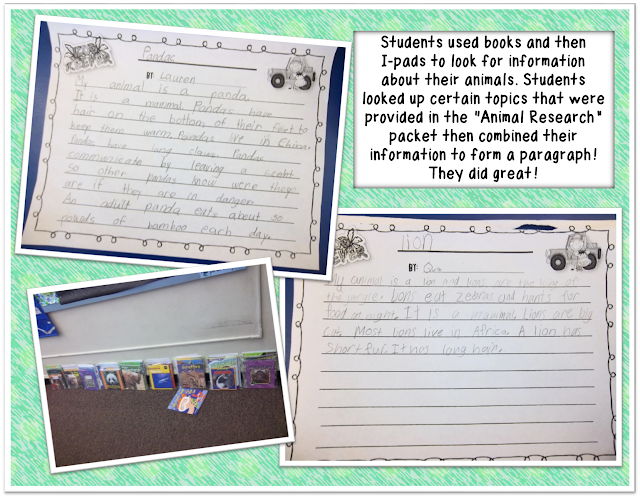 Pandas
BY: Lauren
My animal is a panda.
It is a mammal. Pandas have
hair on the bottom of their feet to
keep them warm. Pandas live in China.
Pandas have long claws. Pandas
communicate by leaving a scent
so other pandas know were they
are if they are in danger.
An adult panda eats about 80
pounds of bamboo each day.
Students used books and then
I-pads to look for information
about their animals. Students
looked up certain topics that were
provided in the "Animal Research"
packet then combined their
information to form a paragraph!
They did great!
lion
BY:
My animal is a lion and lions are the king of
the jungle. Lions eat zebras and hunts for
food at night. It is a mammal. Lions are big
cats. Most lions live in Africa. A lion has
short fur. It has long hair.